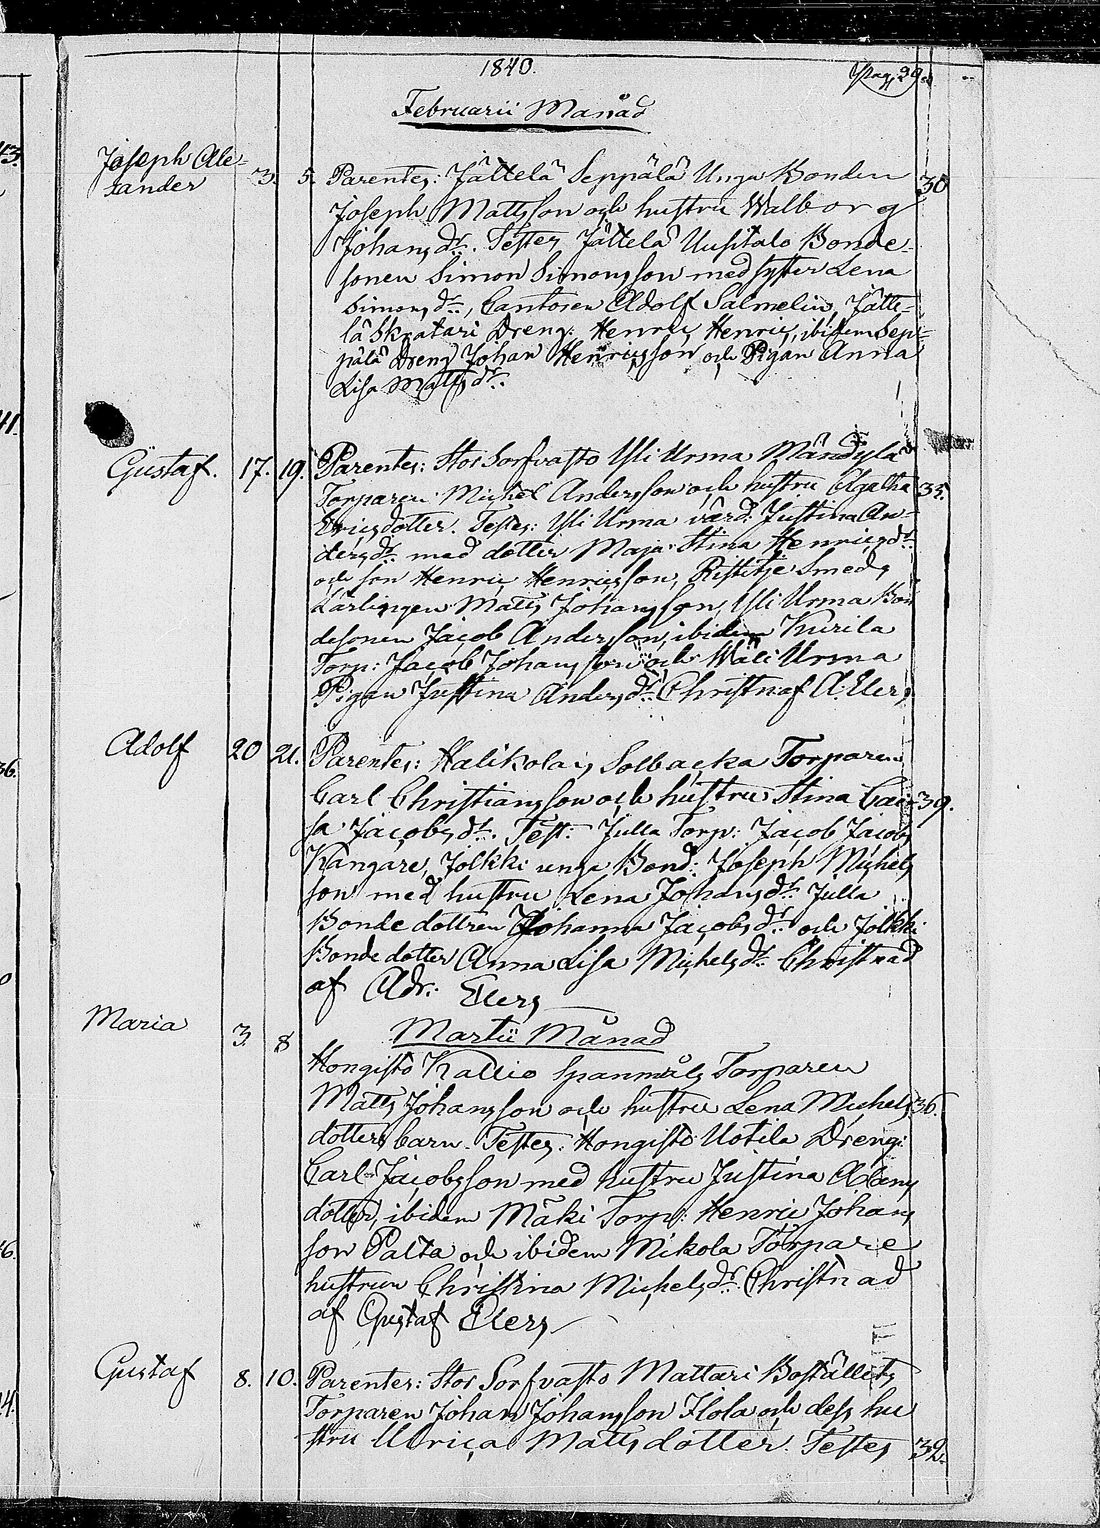 1840.
Pag. 29.
Februarii Månad
Joseph Ale-
xander
3. 5. Parentes: Jättelä Seppälä Unga Bonden 30
Joseph Mattsson och hustru Walborg
Johansdr. Testes Jättelä Uusitalo Bonde-
sonen Simon Simonsson med syster Lena
Simonsdr., Cantoren Adolf Salmelin, Jätte-
lä Skratari Dreng: Henric Henrics, ibidem Sep-
pälä Dreng Johan Henricsson och Pigan Anna
Lisa Mattsdr.
Gustaf. 17. 19. Parentes: Stor Sorfvasto Yli Urma Mändylä
Torparen Michel Andersson och hustru Agatha 35.
Ericsdotter. Testes: Yli Urma värd: Justina An-
dersdr. med dotter Maja Stina Henricsdr.
och son Henric Henricsson, Ristitje Smeds
Lärlingen Matts Johansson, Yli Urma Bon
desonen Jacob Andersson, ibidem Kurila
Torp: Jacob Johansson och Wäli Urma
Pigan Justina Andersdr. Christn af A. Elers
Adolf 20 21. Parentes: Halikolais Solbacka Torparen
Carl Christiansson och hustru Stina Cai- 39.
sa Jacobsdr. Test: Julla Torp: Jacob Jacobs
Kangare, Jolkki unga Bond: Joseph Michels
son med hustru Lena Johansdr. Julla
Bonde dottren Johanna Jacobsdr. och Jolkki
Bonde dotter Anna Lisa Michelsdr. Christnad
af Adr: Elers
Martii Månad
Maria 3. 8
Hongisto Kallio Spanmåls Torparen
Matts Johansson och hustru Lena Michels 36.
dotters barn. Testes: Hongisto Uotila Dreng:
Carl Jacobsson med hustru Justina Adams
dotter, ibidem Mäki Torp: Henric Johans
son Palta och ibidem Mikola Torpare
hustrun Christina Michelsdr. Christnad
af Gustaf Elers
Gustaf 8. 10. Parentes: Stor Sorfvasto Mattari Boställets
Torparen Johan Johansson Flola och dess hu
stru Ulrica Mattsdotter. Testes 32.